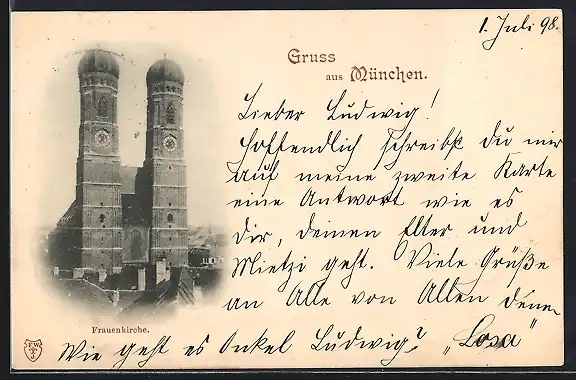 1. Juli 98.
Gruss
aus München.
Lieber Ludwig!
Hoffendlich schreibst du mir
auf meine zweite Karte
eine Antwort wie es
Dir, deinen Elter und
Mietzi geht. Viele Grüße
an Alle von Allen deine
"Losa"
Wie geht es Onkel Ludwig?
Frauenkirche.